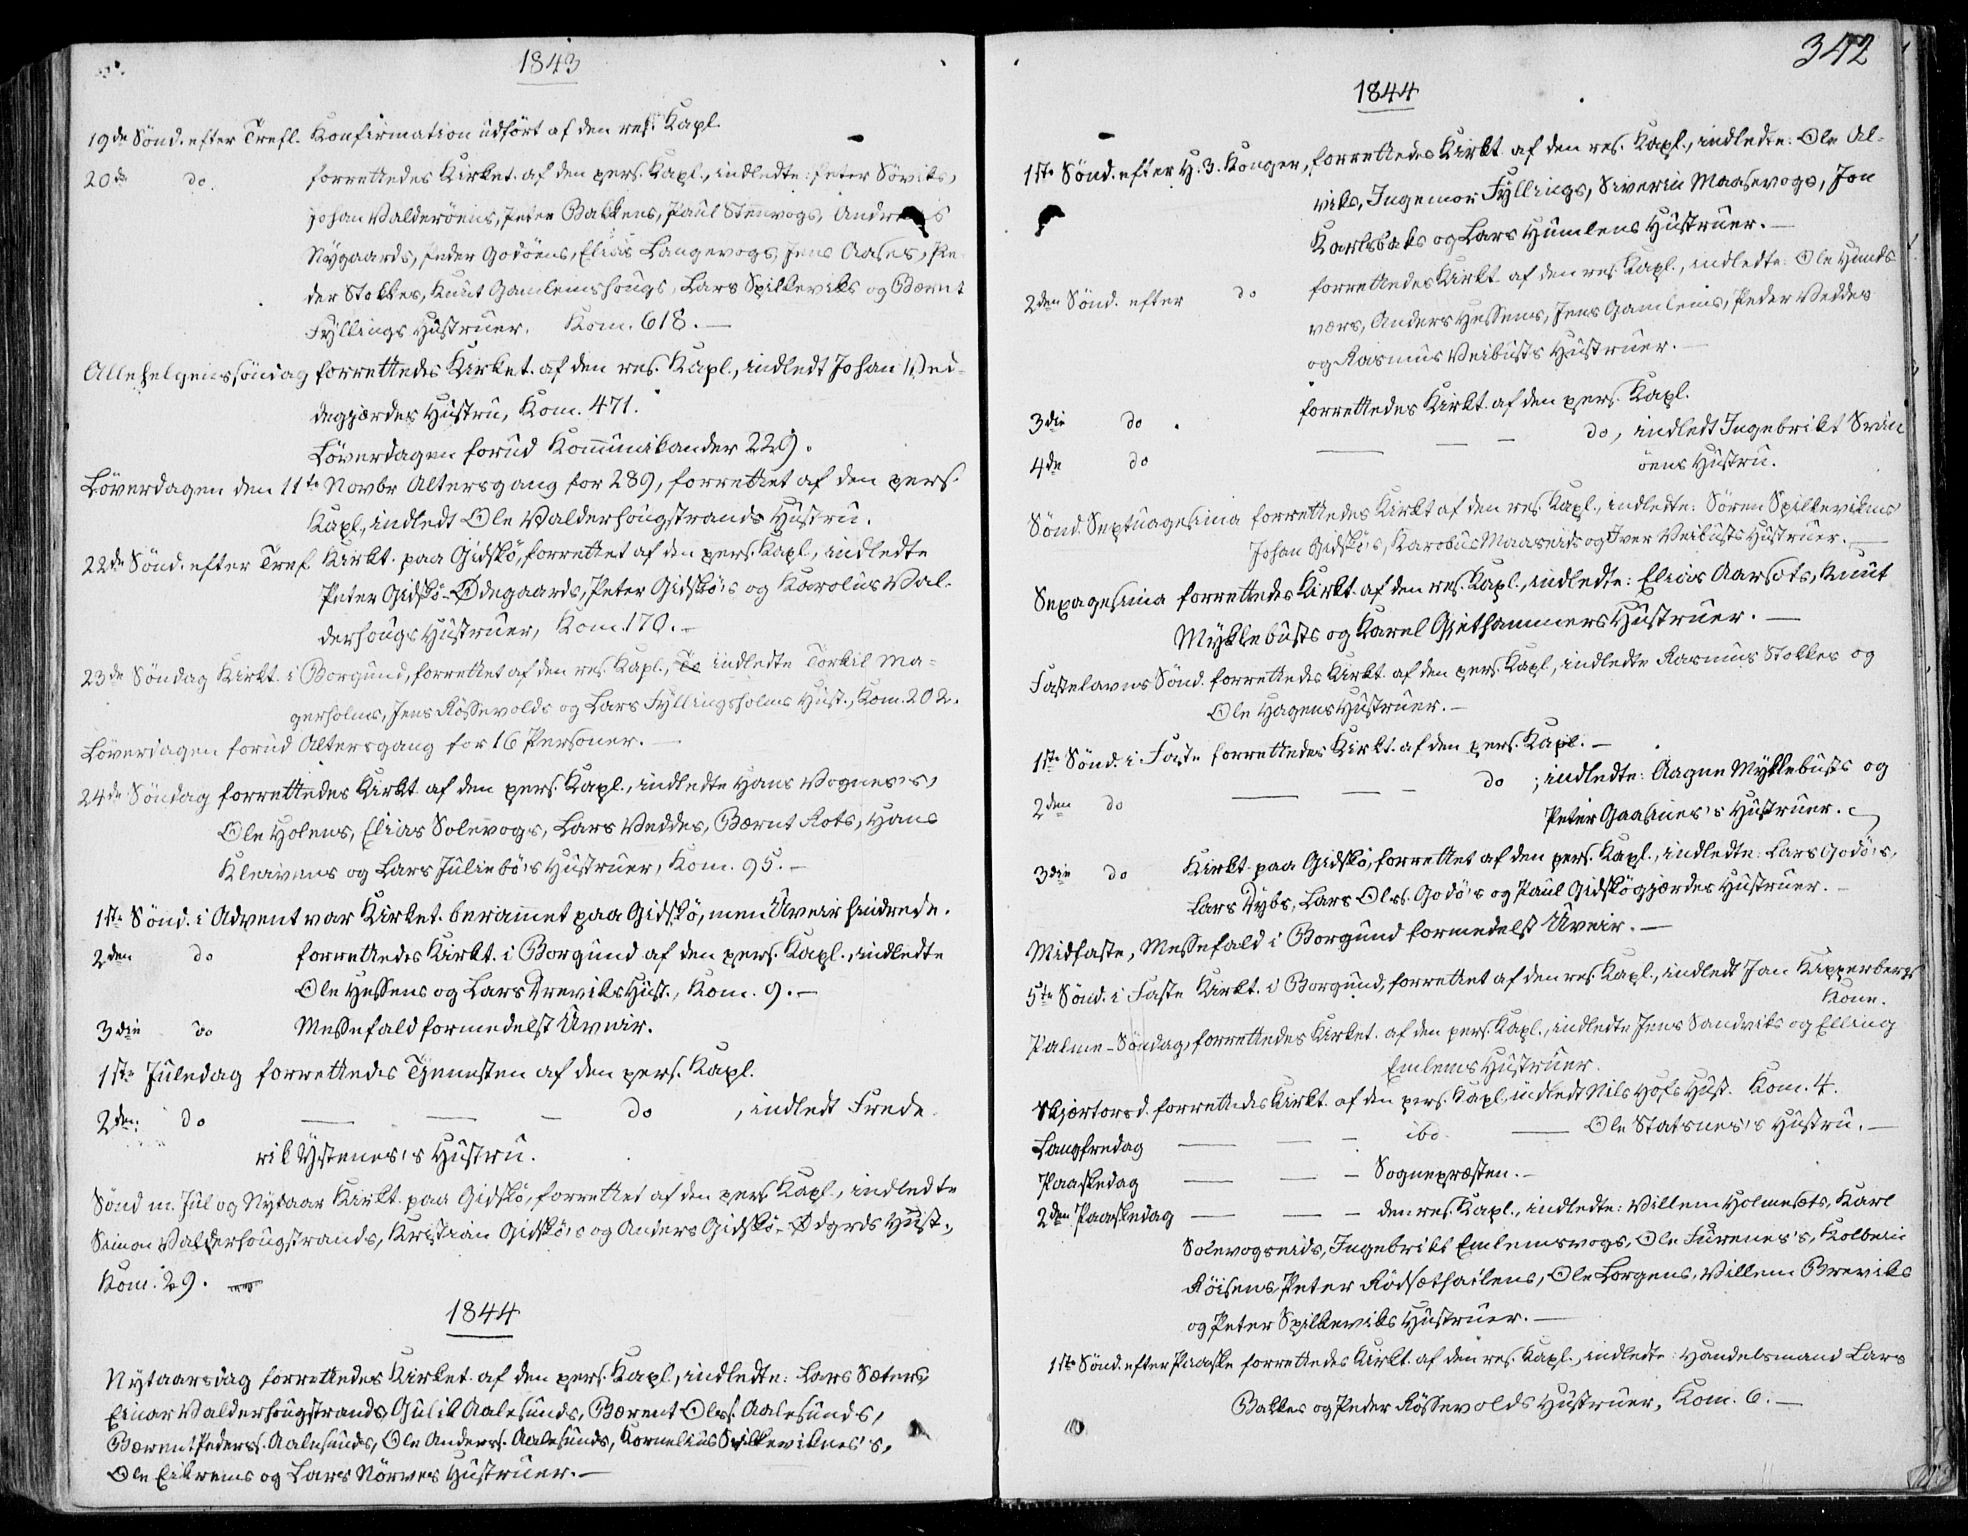 1843
19de Sönd. efter Tref. Konfirmation udfört af den res. Kapl.
20de do. forrettedes Kirket. af den pers. Kapl., indledte: Peter Söviks,
Johan Valderöens, Peter Bakkens, Paul Stennvogs, Andreas
Nygaards, Peder Godöens, Elias Langevogs, Jens Aases, Pe-
der Stokkes, Knut Gamlemshougs, Lars Spilkeviks og Bærnt
Fyllings Hustruer. Kom. 618. —
Allehelgenssöndag forrettedes Kirket. af den res. Kapl., indledt Johan Ved-
degjærdes Hustru, Kom. 471.
Löverdagen forud Kommunikander 229.
Löverdagen den 11te Novbr Altersgang for 289, forrettet af den pers.
Kapl., indledt Ole Valderhougstrands Hustru.
22de Sönd. efter Tref. Kirkt. paa Gidskö, forrettet af den pers. Kapl., indledte
Peter Gidskö-Ödegaards, Peter Gidskö's og Karolus Val-
derhougs Hustruer, Kom. 170. —
23de Söndag Kirkt. i Borgund, forrettet af den res. Kapl., To indledte Torkil Ma-
gerholms, Jens Rössevolds og Lars Fyllingsholms Hust., Kom. 202.
Löverdagen forud Altersgang for 16 Personer. —
24de Söndag forrettedes Kirkt. af den pers. Kapl., indledte Hans Vognes's,
Ole Holens, Elias Solevogs, Lars Veddes, Bærnt Rots, Hans
Kleivens og Lars Juliebö's Hustruer, Kom. 95. —
1ste Sönd. i Advent var Kirket. berammet paa Gidskö, men Uveir hindrede.
2den do forrettedes Kirkt. i Borgund af den pers. Kapl., indledte
Ole Hessens og Lars Dreviks Hust., Kom. 9. —
3die do Messefald formedelst Uveir.
1ste Juledag forrettedes Tjenesten af den pers. Kapl.
2den do — — — do , indledt Frede-
rik Ystenes's Hustru.
Sönd m. Jul og Nytaar Kirkt. paa Gidskö, forrettet af den pers. Kapl., indledte
Simon Valderhougstrands, Kristian Gidskö's og Anders Gidskö-Ödgrds Hust.,
Kom. 29. —
1844
Nytaarsdag forrettedes Kirket. af den pers. Kapl., indledte: Lars Sæters,
Einar Valderhougstrands, Gulik Aalesunds, Bærent Olss. Aalesunds,
Bærent Pederss. Aalesunds, Ole Anderss. Aalesunds, Kornelius Spilkeviknes's,
Ole Eikrems og Lars Nörves Hustruer. —
342
1844
1ste Sönd. efter H. 3. Konger, forrettedes Kirkt. af den res. Kapl., indledte: Ole Al-
viks, Ingemor Fyllings, Siverin Maasevogs, Jon
Karlsbaks og Lars Humlens Hustruer. —
2den Sönd. efter do forrettedes Kirkt. af den res. Kapl., indledte: Ole Hunds-
værs, Anders Hessens, Jens Gamlems, Peder Veddes
og Rasmus Veibusts Hustruer. —
3die do . forrettedes Kirkt. af den pers. Kapl.
4de do — — — do, indledt Ingebrikt Svin-
öens Hustru.
Sönd. Septuagesima forrettedes Kirkt. af den res. Kapl., indledte: Sören Spilkeviknes
Johan Gidskö's, Karobus Maaseids og Iver Veibusts Hustruer. —
Sexagesima forrettedes Kirkt. af den res. Kapl., indledte: Elias Aarsets, Knut
Myklebusts og Karel Gjethammers Hustruer. —
Fastelavns Sönd. forrettedes Kirkt. af den pers. Kapl., indledte Rasmus Stokkes og
Ole Hagens Hustruer. —
1ste Sönd. i Faste forrettedes Kirkt. af den pers. Kapl. —
2den do — — — do ; indledte: Aagne Myklebusts og
Peter Gaasnes's Hustruer. —
3die do Kirkt. paa Gidskö, forrettet af den pers. Kapl., indledte: Lars Godö's,
Lars Dybs, Lars Olss. Godö's og Paul Gidskögjærdes Hustruer. —
Midfaste, Messefald i Borgund formedelst Uveir. —
5te Sönd. i Faste Kirkt. i Borgund, forrettet af den res. Kapl., indledt Jan Kipperbergs
Kone.
Palme-Söndag, forrettedes Kirket. af den pers. Kapl., indledte Jens Sandviks og Elling
Emlems Hustruer.
Skjærtorsd. forrettedes Kirkt. af den pers. Kapl. indledt Nils Hofs Hust. Kom. 4.
Langfredag — — — ibo. — Ole Statsnes's Hustru. —
Paaskedag — — — Sognepræsten. —
2den Paaskedag — — — den res. Kapl., indledte: Villem Holmesets, Karl
Solevogseids, Ingebrikt Emlemsvogs, Ole Furenes's, Kolbein
Röisens, Peter Rödsethailens, Ole Lorgens, Villem Breviks
og Peter Spilkeviks Hustruer. —
1ste Sönd. efter Paaske forrettedes Kirkt. af den res. Kapl., indledte: Handelsmand Lars
Bakkes og Peder Rössevolds Hustruer, Kom. 6. —